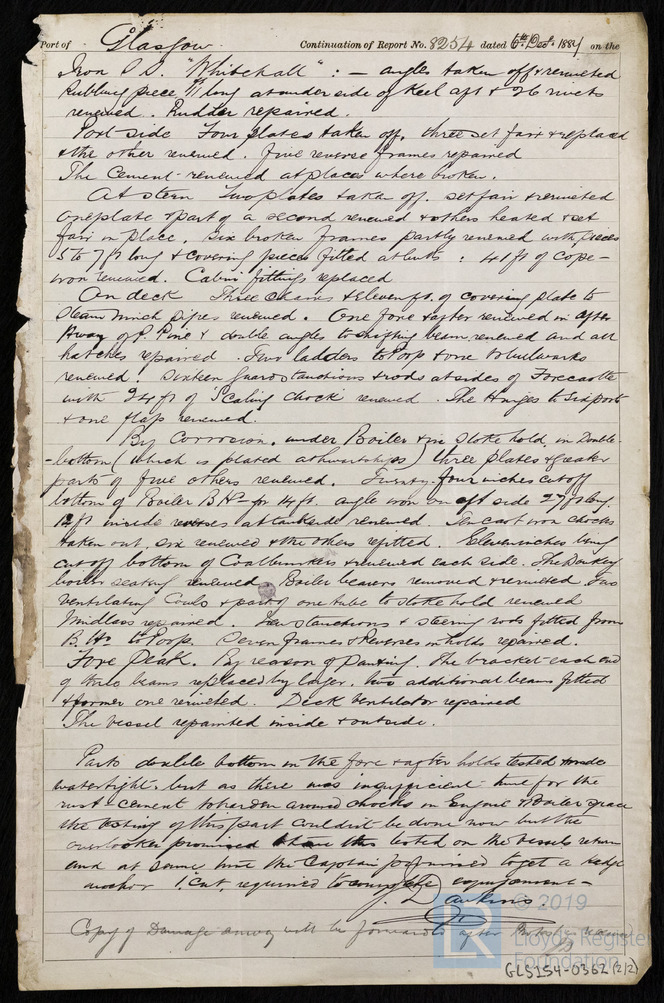 Port of Glasgow Continuation of Report No. 8254 dated 6th Decr. 1884 on the
Iron S.S. "Whitehall" : — angles taken off & reriveted
Rubbing piece long at under side of Keel aft & 26 rivets
renewed. Rudder repaired.
Port side Four plates taken off, three set fair & replaced
& the other renewed. Five reverse frames repaired
The Cement renewed at places where broken.
At stern Two plates taken off. set fair & reriveted
one plate & part of a second renewed & others heated & set
fair in place. Six broken frames partly renewed with pieces
5 to 7 ft long & covering pieces fitted at butts : 41 ft of cope-
iron renewed. Cabin fittings replaced
On deck Three chains & eleven ft. of covering plate to
steam winch pipes renewed. One fore & after renewed in after
H'way of P. Pine & double angles to shifting beam renewed and all
hatches repaired. Two ladders to Poop & one to bulwarks
renewed. Sixteen guard stanchions & rods at sides of Forecastle
with 24 ft of Scaling chock renewed. The Hinges to
& one flap renewed.
By Corrosion. under Boiler & in Stokehold, in Double-
-bottom (which is plated athwartships) three plates & greater
parts of five others renewed. Twenty-four inches cut off
bottom of Boiler B.Hd for 14 ft. angle iron on aft side 27 ft long.
12 ft inside reverses at tankside renewed. Ten cast iron chocks
taken out, six renewed & the others refitted. Eleven inches being
cut off bottom of Coalbunkers & renewed each side. The Donkey
boiler seating renewed. Boiler bearers removed & reriveted. Two
ventilating Cowls & part of one tube to stokehold renewed
Windlass repaired. Few stanchions & steering rods fitted from
B. Hd to Poop. Seven frames & Reverses in holds repaired.
Fore Peak. By reason of panting. The bracket each end
of three beams replaced by larger. two additional beams fitted
& former one reriveted. Deck ventilator repaired
The vessel repainted inside & outside.
Parts double bottom in the fore & after holds tested & made
watertight, but as there was insufficient time for the
rust cement to harden around chocks in Engine & Boiler space
the testing of this part couldn't be done now but the
overlooker promised to have this tested on the vessels return
and at same time the Captain promised to get a kedge
anchor 1 Cwt. required to complete equipment —
J. Dawkins.
Copy of Damage survey will be forwarded after
© 2019
LR
Lloyd's Register
Foundation
GLS154-0362 (2/2)